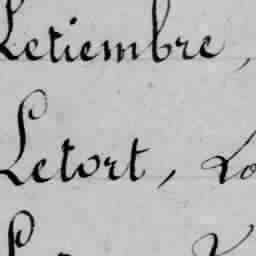 Letiembre,
Letort, Lo